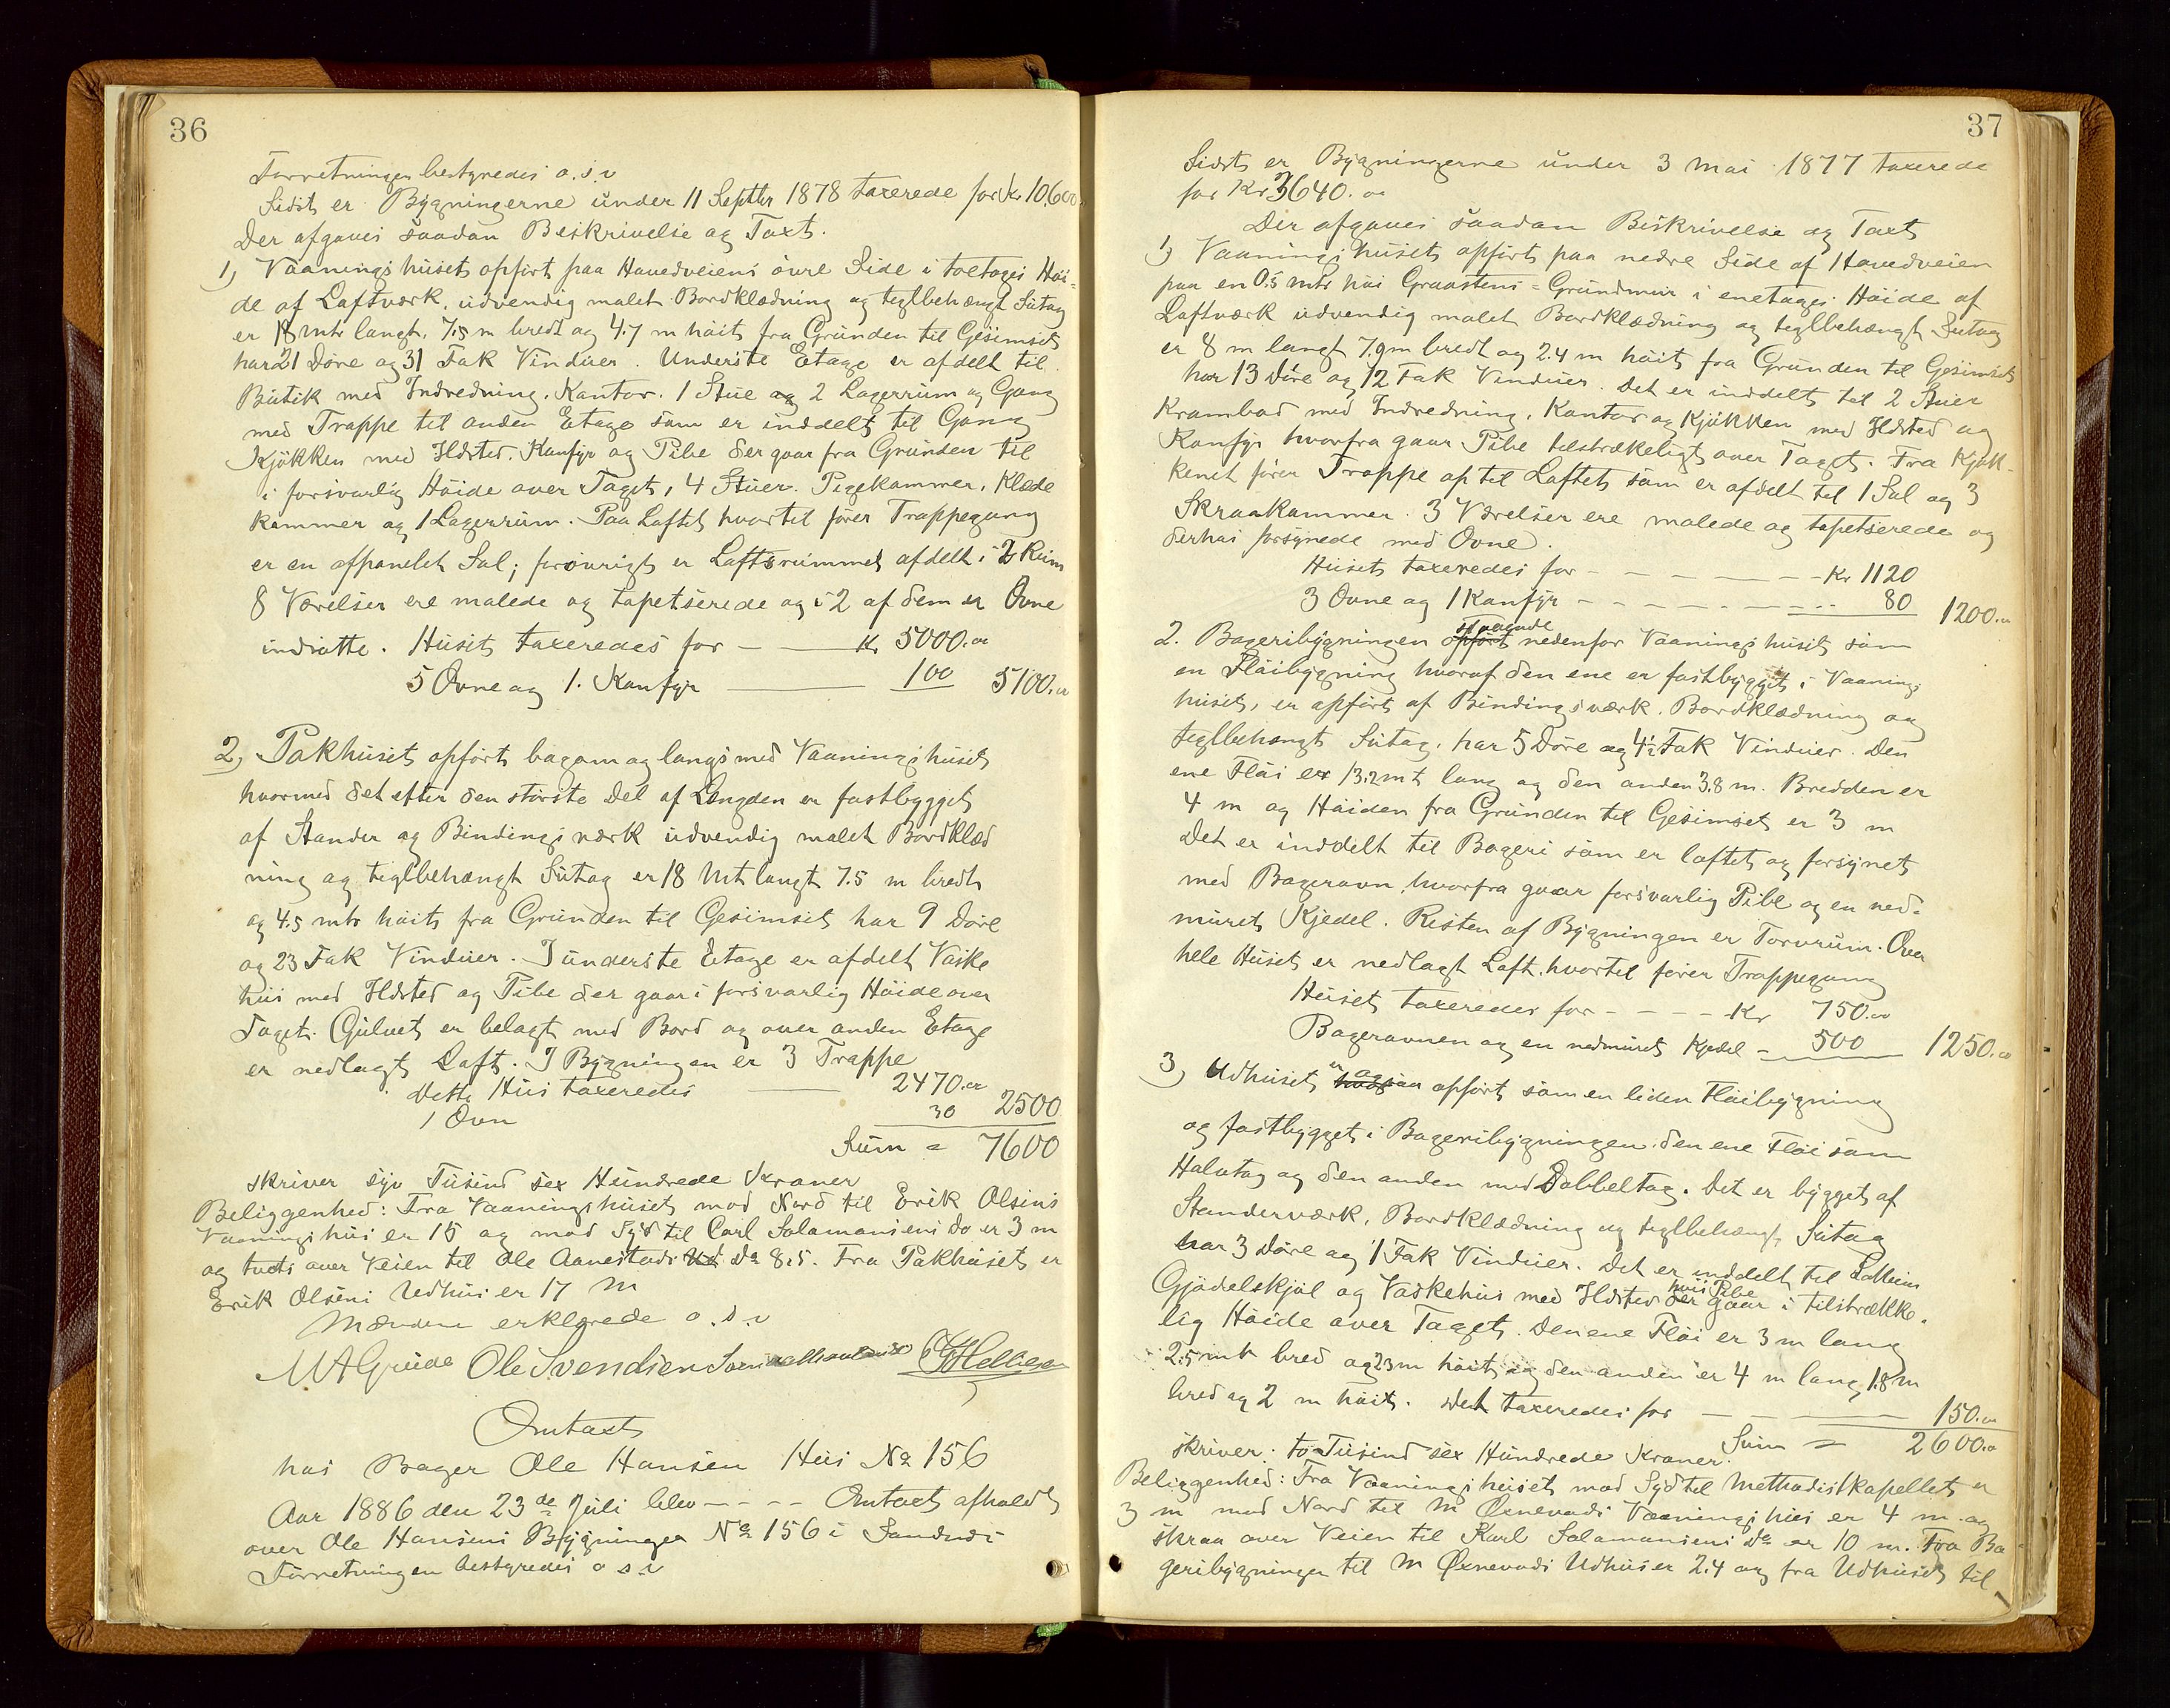 36
Forretningen bestyredes o.s.v
Sidst er Bygningerne under 11 Septbr 1878 taxerede for Kr 10.600
Der afgaves saadan Beskrivelse og Taxt.
1) Vaaningshuset opført paa Hovedveiens øvre Side i toetages Høi-
de af Laftværk, udvendig malet Bordklædning og teglbehængt Sutag
er 18 mtr langt, 7.5 m bredt og 4.7 m høit fra Grunden til Gesimset
har 21 Døre og 31 Fak Vinduer. Underste Etage er afdelt til
Butik med Indredning, Kontor, 1 Stue og 2 Lagerrum og Gang
med Trappe til anden Etage som er inddelt til Gang
Kjøkken med Ildsted, Komfyr og Pibe der gaar fra Grunden til
i forsvarlig Høide over Taget, 4 Stuer, Pigekammer, Klæde
kammer og 1 Lagerrum. Paa Loftet hvortil fører Trappegang
er en afpanelet Sal; forøvrigt er Loftsrummet afdelt i 2 Rum
8 Værelser ere malede og tapetserede og i 2 af dem er Ovne
indsatte. Huset taxeredes for — Kr 5000.oo
5 Ovne og 1. Komfyr — 100 5100.oo
2) Pakhuset opført bagom og langs med Vaaningshuset
hvormed det efter den største Del af Længden er fastbygget
af Stander og Bindingsværk udvendig malet Bordklæd
ning og teglbehængt Sutag er 18 Mt langt 7.5 m bredt
og 4.5 mtr høit fra Grunden til Gesimset har 9 Døre
og 23 Fak Vinduer. I underste Etage er afdelt Vaske
hus med Ildsted og Pibe der gaar i forsvarlig Høide over
Taget. Gulvet er belagt med Bord og over anden Etage
er nedlagt Loft. I Bygningen er 3 Trappe
dette Hus taxeredes — 2470.oo
1 Ovn 30 2500
Sum = 7600
skriver syv Tusind sex Hundrede Kroner
Beliggenhed: Fra Vaaningshuset mod Nord til Erik Olsens
Vaaningshus er 15 og mod Syd til Carl Salamonsens Do er 3 m
og tvers over Veien til Ole Aanestads Do 8.5. Fra Pakhuset er
Erik Olsens Udhus er 17 m
Mændene erklærede o.s.v
M A Grude Ole Svendsen
Omtaxt
hos Bager Ole Hansen Hus No 156
Aar 1886 den 23de Juli blev - - - - Omtaxt afholdt
over Ole Hansens Bygninger No 156 i Sandnes
Forretningen bestyredes o s v
37
Sidst er Bygningerne under 3 Mai 1877 taxerede
for Kr 3640.oo
Der afgaves saadan Beskrivelse og Taxt
1) Vaaningshuset opført paa nedre Side af Hovedveien
paa en 0.5 mtr høi Graastens-Grundmur i enetages Høide af
Laftværk udvendig malet Bordklædning og teglbehængt Sutag
er 8 m langt 7.9 m bredt og 2.4 m høit fra Grunden til Gesimset
har 13 Døre og 12 Fak Vinduer. Det er inddelt til 2 Stuer
Krambod med Indredning, Kontor og Kjøkken med Ildsted og
Komfyr hvorfra gaar Pibe tilstrækeligt over Taget. Fra Kjøk-
kenet fører Trappe op til Loftet som er afdelt til 1 Sal og 3
Skraakammer. 3 Værelser ere malede og tapetserede og
derhos forsynede med Ovne.
Huset taxeredes for - - - - - - Kr 1120
3 Ovne og 1 Komfyr - - - - - - - 80 1200.oo
2. Bageribygningen opført staaende nedenfor Vaaningshuset som
en Fløibygning hvoraf den ene er fastbygget i Vaanings
huset, er opført af Bindingsværk, Bordklædning og
teglbehængt Sutag, har 5 Døre og 4½ Fak Vinduer. Den
ene Fløi er 13.2 mt lang og den anden 3.8 m. Bredden er
4 m og Høiden fra Grunden til Gesimset er 3 m
Det er inddelt til Bageri som er loftet og forsynet
med Bagerovn, hvorfra gaar forsvarlig Pibe og en ned-
muret Kjedel. Resten af Bygningen er Torvrum. Over
hele Huset er nedlagt Loft, hvortil fører Trappegang
Huset taxeredes for - - - - Kr 750.oo
Bagerovnen og en nedmuret Kjedel - 500 1250.oo
3) Udhuset er og opført som en liden Fløibygning
og fastbygget i Bageribygningen, den ene Fløi som
Halvtag og den anden med Dobbeltag. Det er bygget af
Standerværk, Bordklædning og teglbehængt Sutag
har 3 Døre og 1 Fak Vinduer. Det er inddelt til Lokum
Gjødelskjøl og Vaskehus med Ildsted der hvis Pibe gaar i tilstrække-
lig Høide over Taget. Den ene Fløi er 3 m lang
2.5 mt bred og 2.3 m høit og den anden er 4 m lang 1.8 m
bred og 2 m høit. Det taxeredes for — 150.oo
Sum = 2600.oo
skriver: to Tusind sex Hundrede Kroner.
Beliggenhed: Fra Vaaningshuset mod Syd til Methodistkapellet er
3 m mod Nord til M Øxnevads Vaaningshus er 4 m og
skraa over Veien til Karl Salamonsens Do er 10 m. Fra Ba-
geribygningen til M Øxnevads Udhus er 2.4 og fra Udhuset til